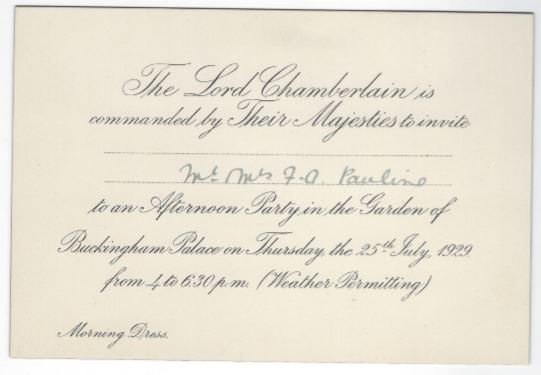 The Lord Chamberlain is
commanded by Their Majesties to invite
Mr. Mrs F. A. Pauline
to an Afternoon Party in the Garden of
Buckingham Palace on Thursday, the 25th July, 1929.
from 4 to 6.30 p.m. (Weather Permitting)
Morning Dress.